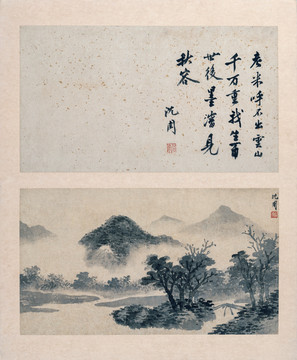 老米呼不出雲山
千万重我生百
世後墨瀋見
秋容
沈周
沈周